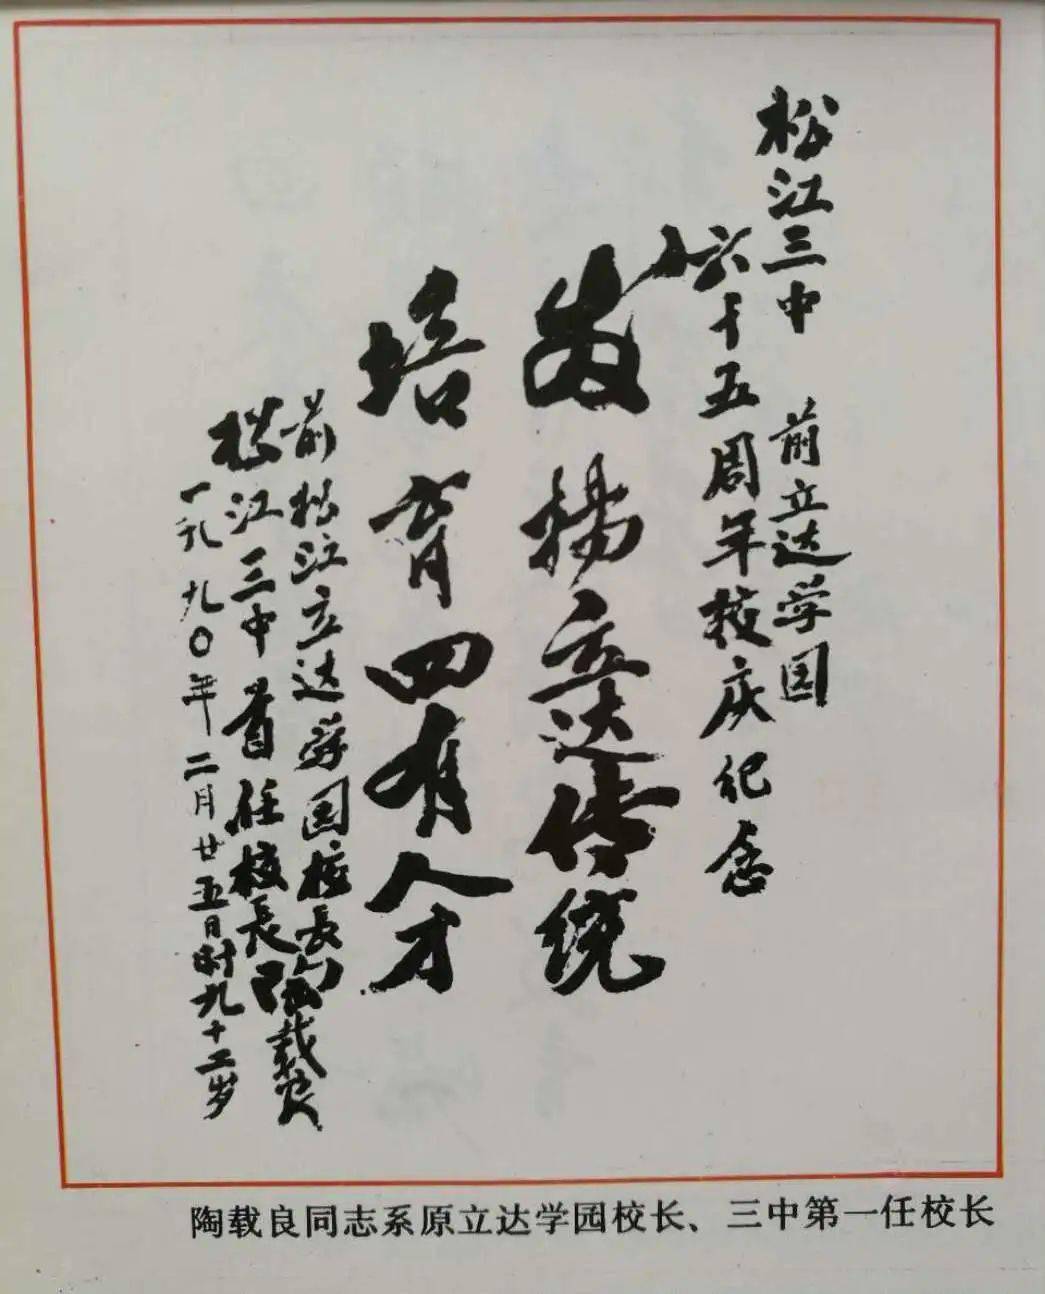 松江三中 前立达学园
六十五周年校庆纪念
发扬立达传统
培育四有人才
前松江立达学园校長
松江三中首任校長陶载良
一九九〇年二月廿五日时九十二岁
陶载良同志系原立达学园校长、三中第一任校长